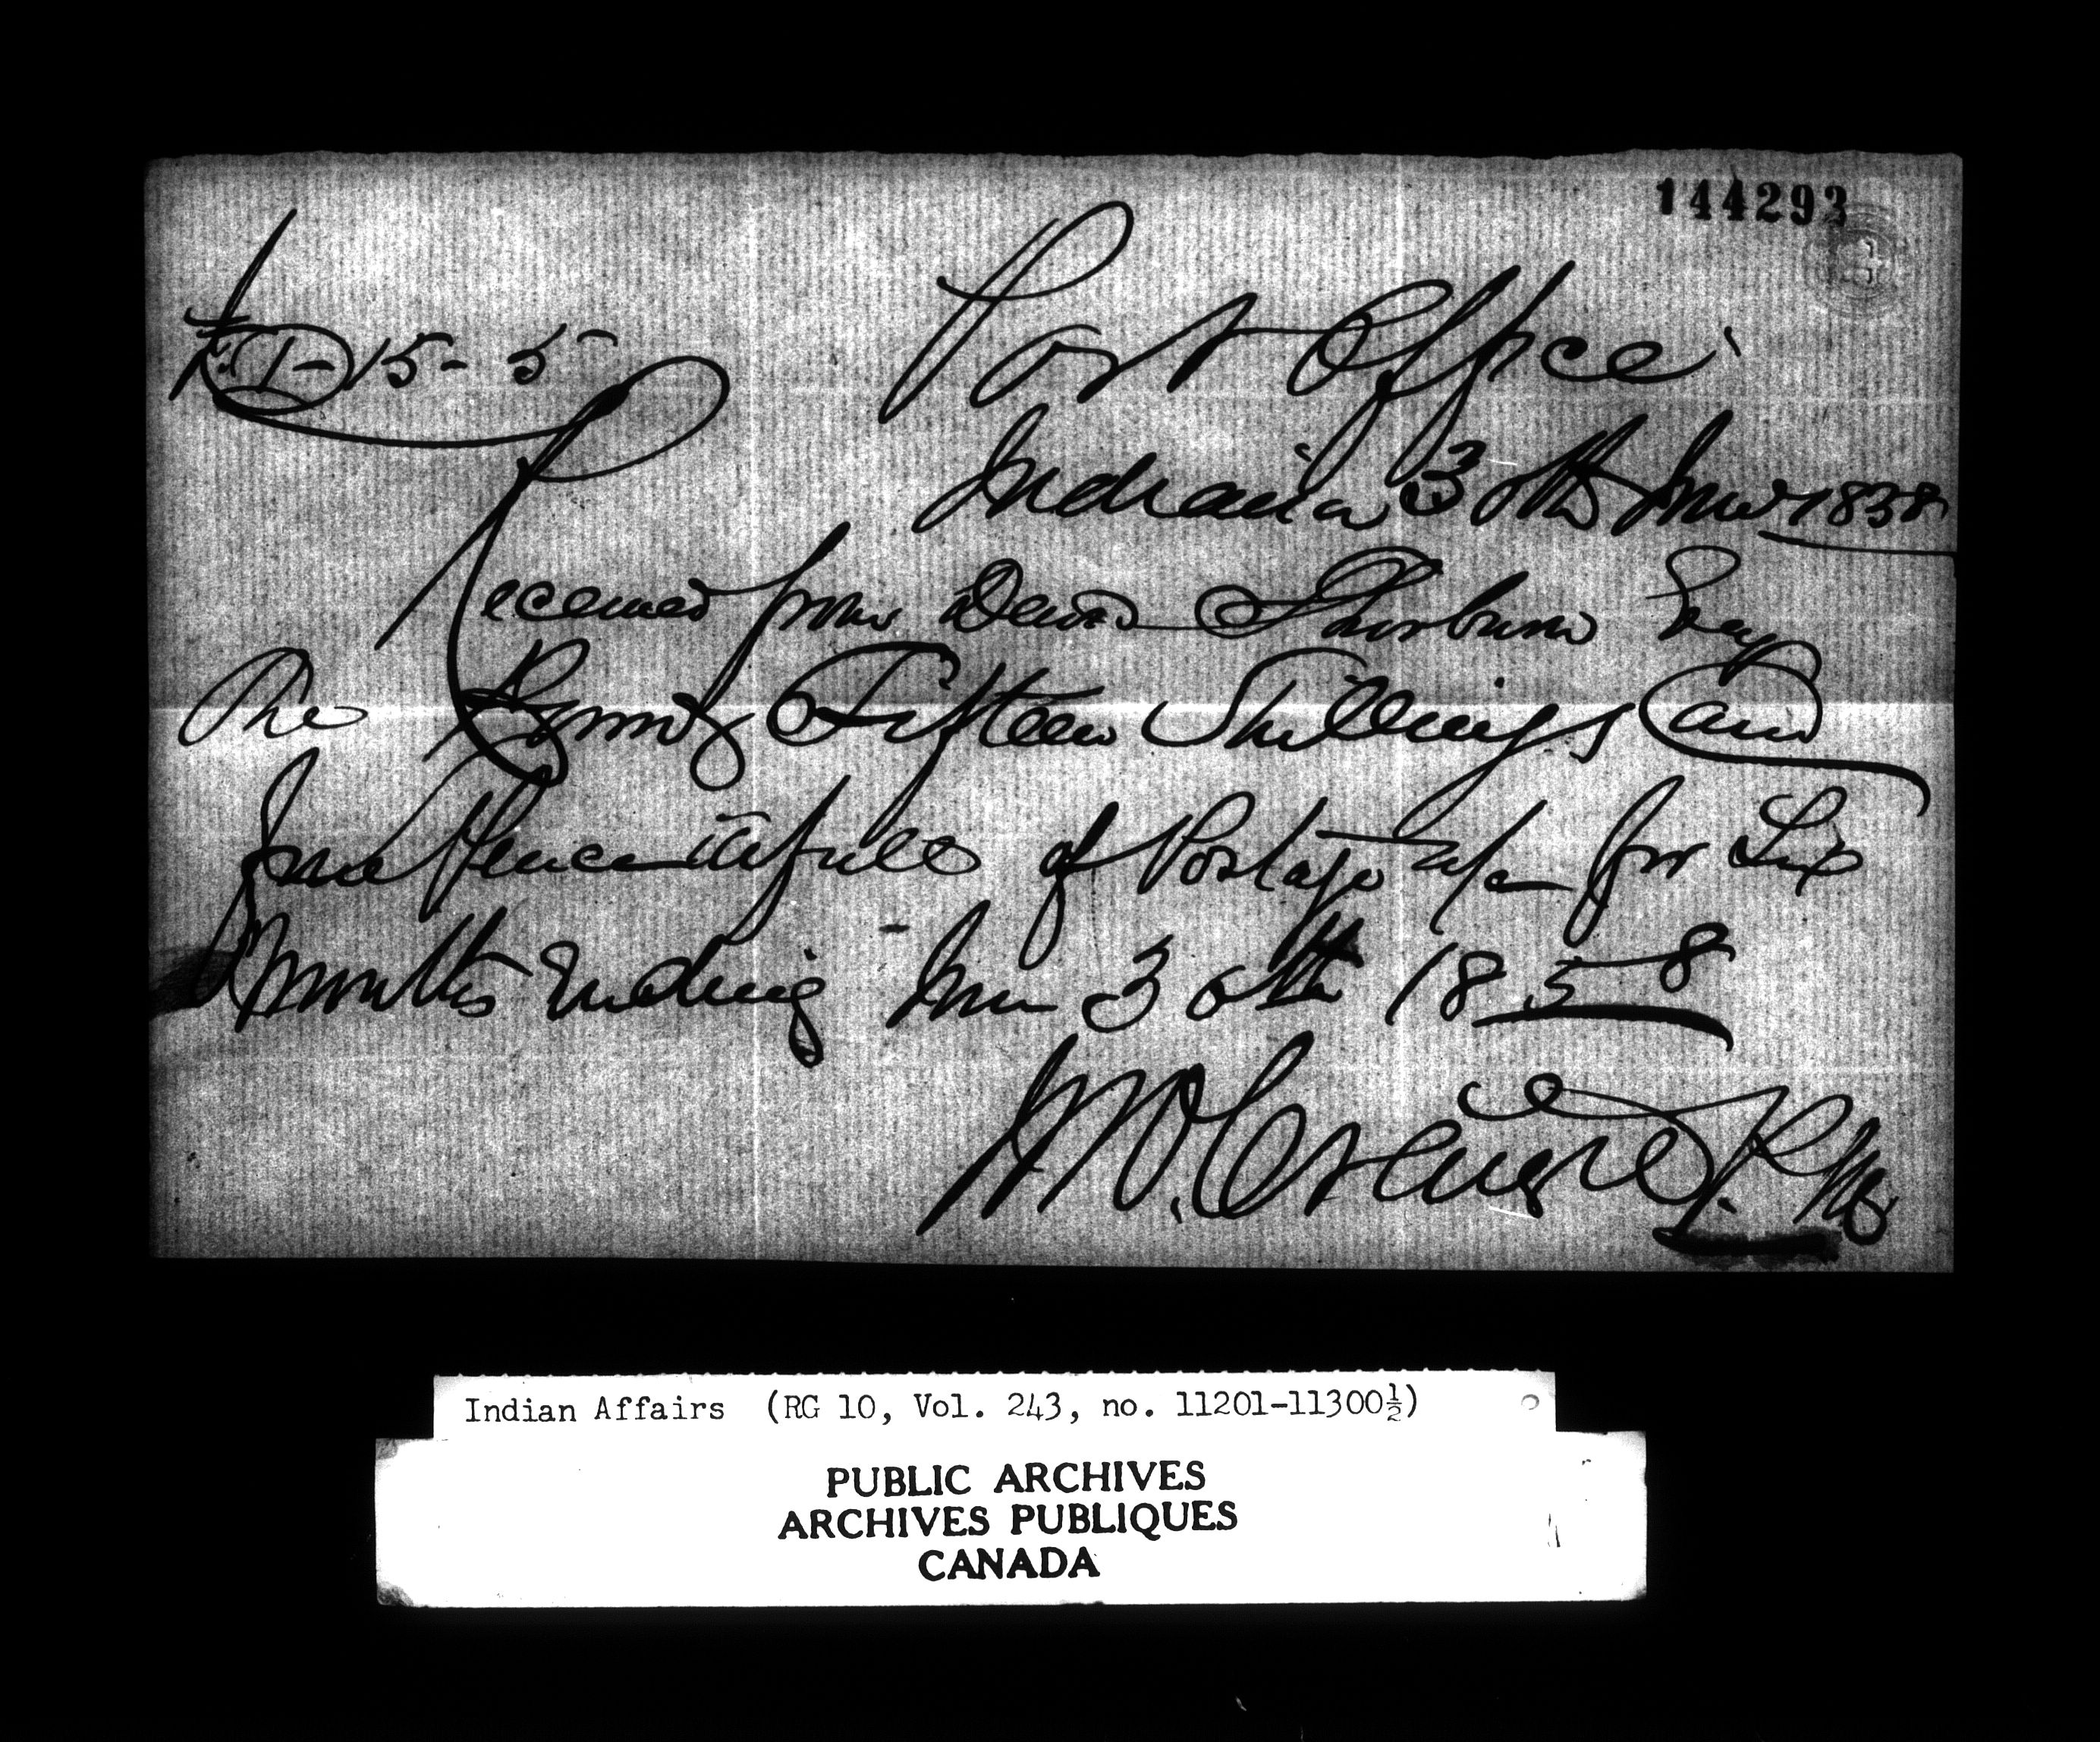 144293
£1-15-5
Post Office
Indiana 30th June 1858
Received from David Thorburn Esq
One Pound Fifteen Shillings and
five Pence in full of Postage a/c for Six
Months Ending June 30th 1858
P.M.
Indian Affairs (RG 10, Vol. 243, no. 11201-11300½)
PUBLIC ARCHIVES
ARCHIVES PUBLIQUES
CANADA